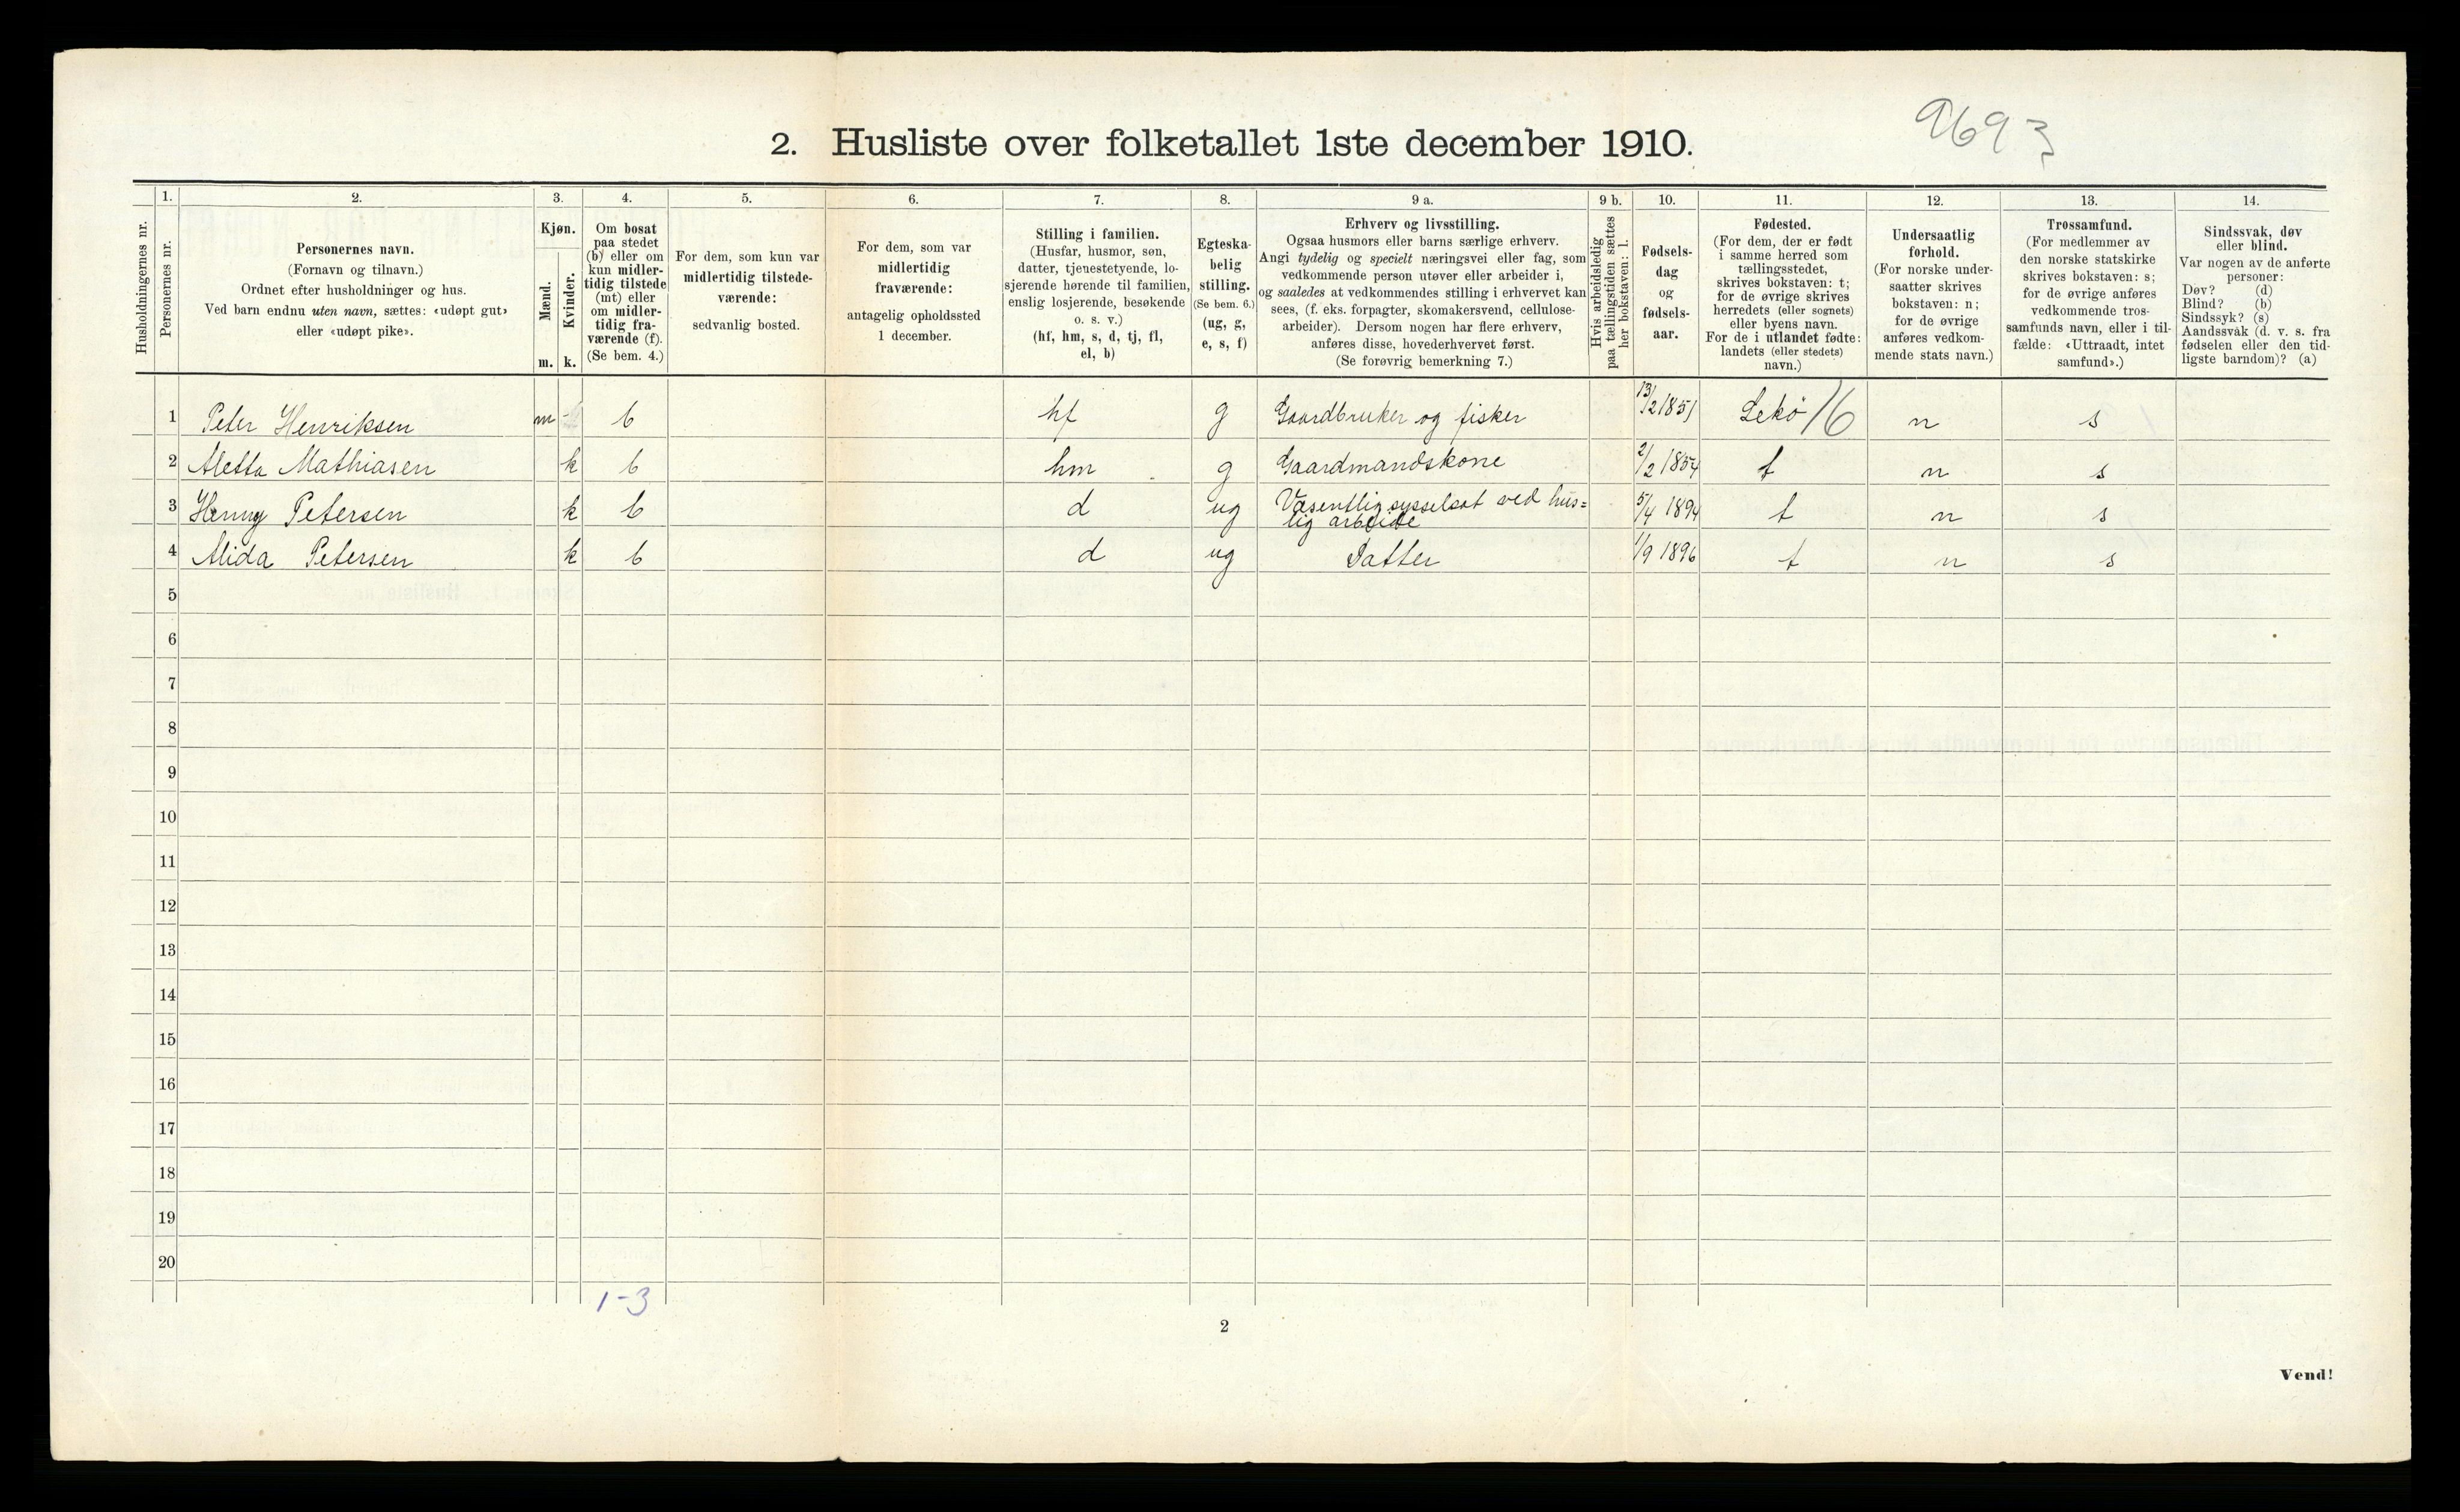 9693
2. Husliste over folketallet 1ste december 1910.
Husholdningernes nr.
1.
Personernes nr.
2.
Personernes navn.
(Fornavn og tilnavn.)
Ordnet efter husholdninger og hus.
Ved barn endnu uten navn, sættes: «udøpt gut»
eller «udøpt pike».
3.
Kjøn.
Mænd.
m.
Kvinder.
k.
4.
Om bosat
paa stedet
(b) eller om
kun midler-
tidig tilstede
(mt) eller
om midler-
tidig fra-
værende (f).
(Se bem. 4.)
5.
For dem, som kun var
midlertidig tilstede-
værende:
sedvanlig bosted.
6.
For dem, som var
midlertidig
fraværende:
antagelig opholdssted
1 december.
7.
Stilling i familien.
(Husfar, husmor, søn,
datter, tjenestetyende, lo-
sjerende hørende til familien,
enslig losjerende, besøkende
o. s. v.)
(hf, hm, s, d, tj, fl,
el, b)
8.
Egteska-
belig
stilling.
(Se bem. 6.)
(ug, g,
e, s, f)
9 a.
Erhverv og livsstilling.
Ogsaa husmors eller barns særlige erhverv.
Angi tydelig og specielt næringsvei eller fag, som
vedkommende person utøver eller arbeider i,
og saaledes at vedkommendes stilling i erhvervet kan
sees, (f. eks. forpagter, skomakersvend, cellulose-
arbeider). Dersom nogen har flere erhverv,
anføres disse, hovederhvervet først.
(Se forøvrig bemerkning 7.)
9 b.
Hvis arbeidsledig
paa tællingstiden sættes
her bokstaven: l.
10.
Fødsels-
dag
og
fødsels-
aar.
11.
Fødested.
(For dem, der er født
i samme herred som
tællingsstedet,
skrives bokstaven: t;
for de øvrige skrives
herredets (eller sognets)
eller byens navn.
For de i utlandet fødte:
landets (eller stedets)
navn.)
12.
Undersaatlig
forhold.
(For norske under-
saatter skrives
bokstaven: n;
for de øvrige
anføres vedkom-
mende stats navn.)
13.
Trossamfund.
(For medlemmer av
den norske statskirke
skrives bokstaven: s;
for de øvrige anføres
vedkommende tros-
samfunds navn, eller i til-
fælde: «Uttraadt, intet
samfund».)
14.
Sindssvak, døv
eller blind.
Var nogen av de anførte
personer:
Døv? (d)
Blind? (b)
Sindssyk? (s)
Aandssvak (d. v. s. fra
fødselen eller den tid-
ligste barndom)? (a)
1 Peter Henriksen m b hf g Gaardbruker og fisker 13/2 1851 Lekö 16 n s
2 Aletta Mathiasen k b hm g Gaardmandskone 2/2 1854 t n s
3 Henny Petersen k b d ug Væsentlig sysselsat ved hus= 5/4 1894 t n s
lig arbeide
4 Alida Petersen k b d ug Datter 1/9 1896 t n s
5
6
7
8
9
10
11
12
13
14
15
16
17
18
19
20
1-3
2
Vend!